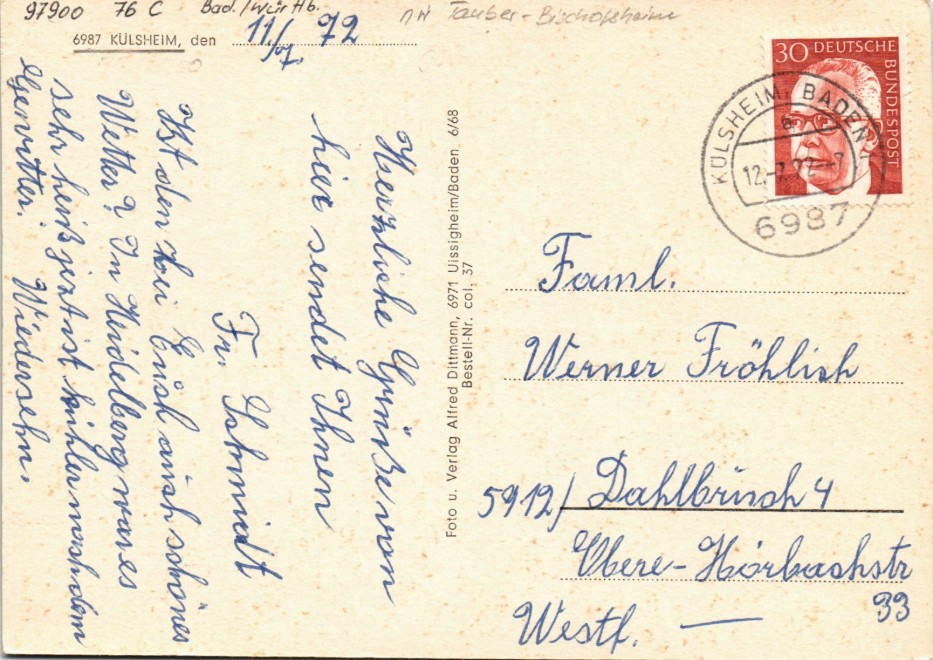 97900 76 C Bad./Württb.
nn Tauber-Bischofsheim
6987 KÜLSHEIM, den 11./7. 72
Herzliche Grüße von
hier sendet Ihnen
Fr. Schmidt
Ist den bei Euch auch schönes
Wetter? In Heidelberg war es
sehr heiß jetzt ist kühler nach dem
Gewitter. Wiedersehn.
Foto u. Verlag Alfred Dittmann, 6971 Uissigheim/Baden 6/68
Bestell-Nr. col. 37
30 DEUTSCHE
BUNDESPOST
KÜLSHEIM, BADEN 1
a
12.-7.72-7
6987
Faml.
Werner Fröhlich
5912/ Dahlbruch 4
Obere-Hörbachstr
33
Westf.